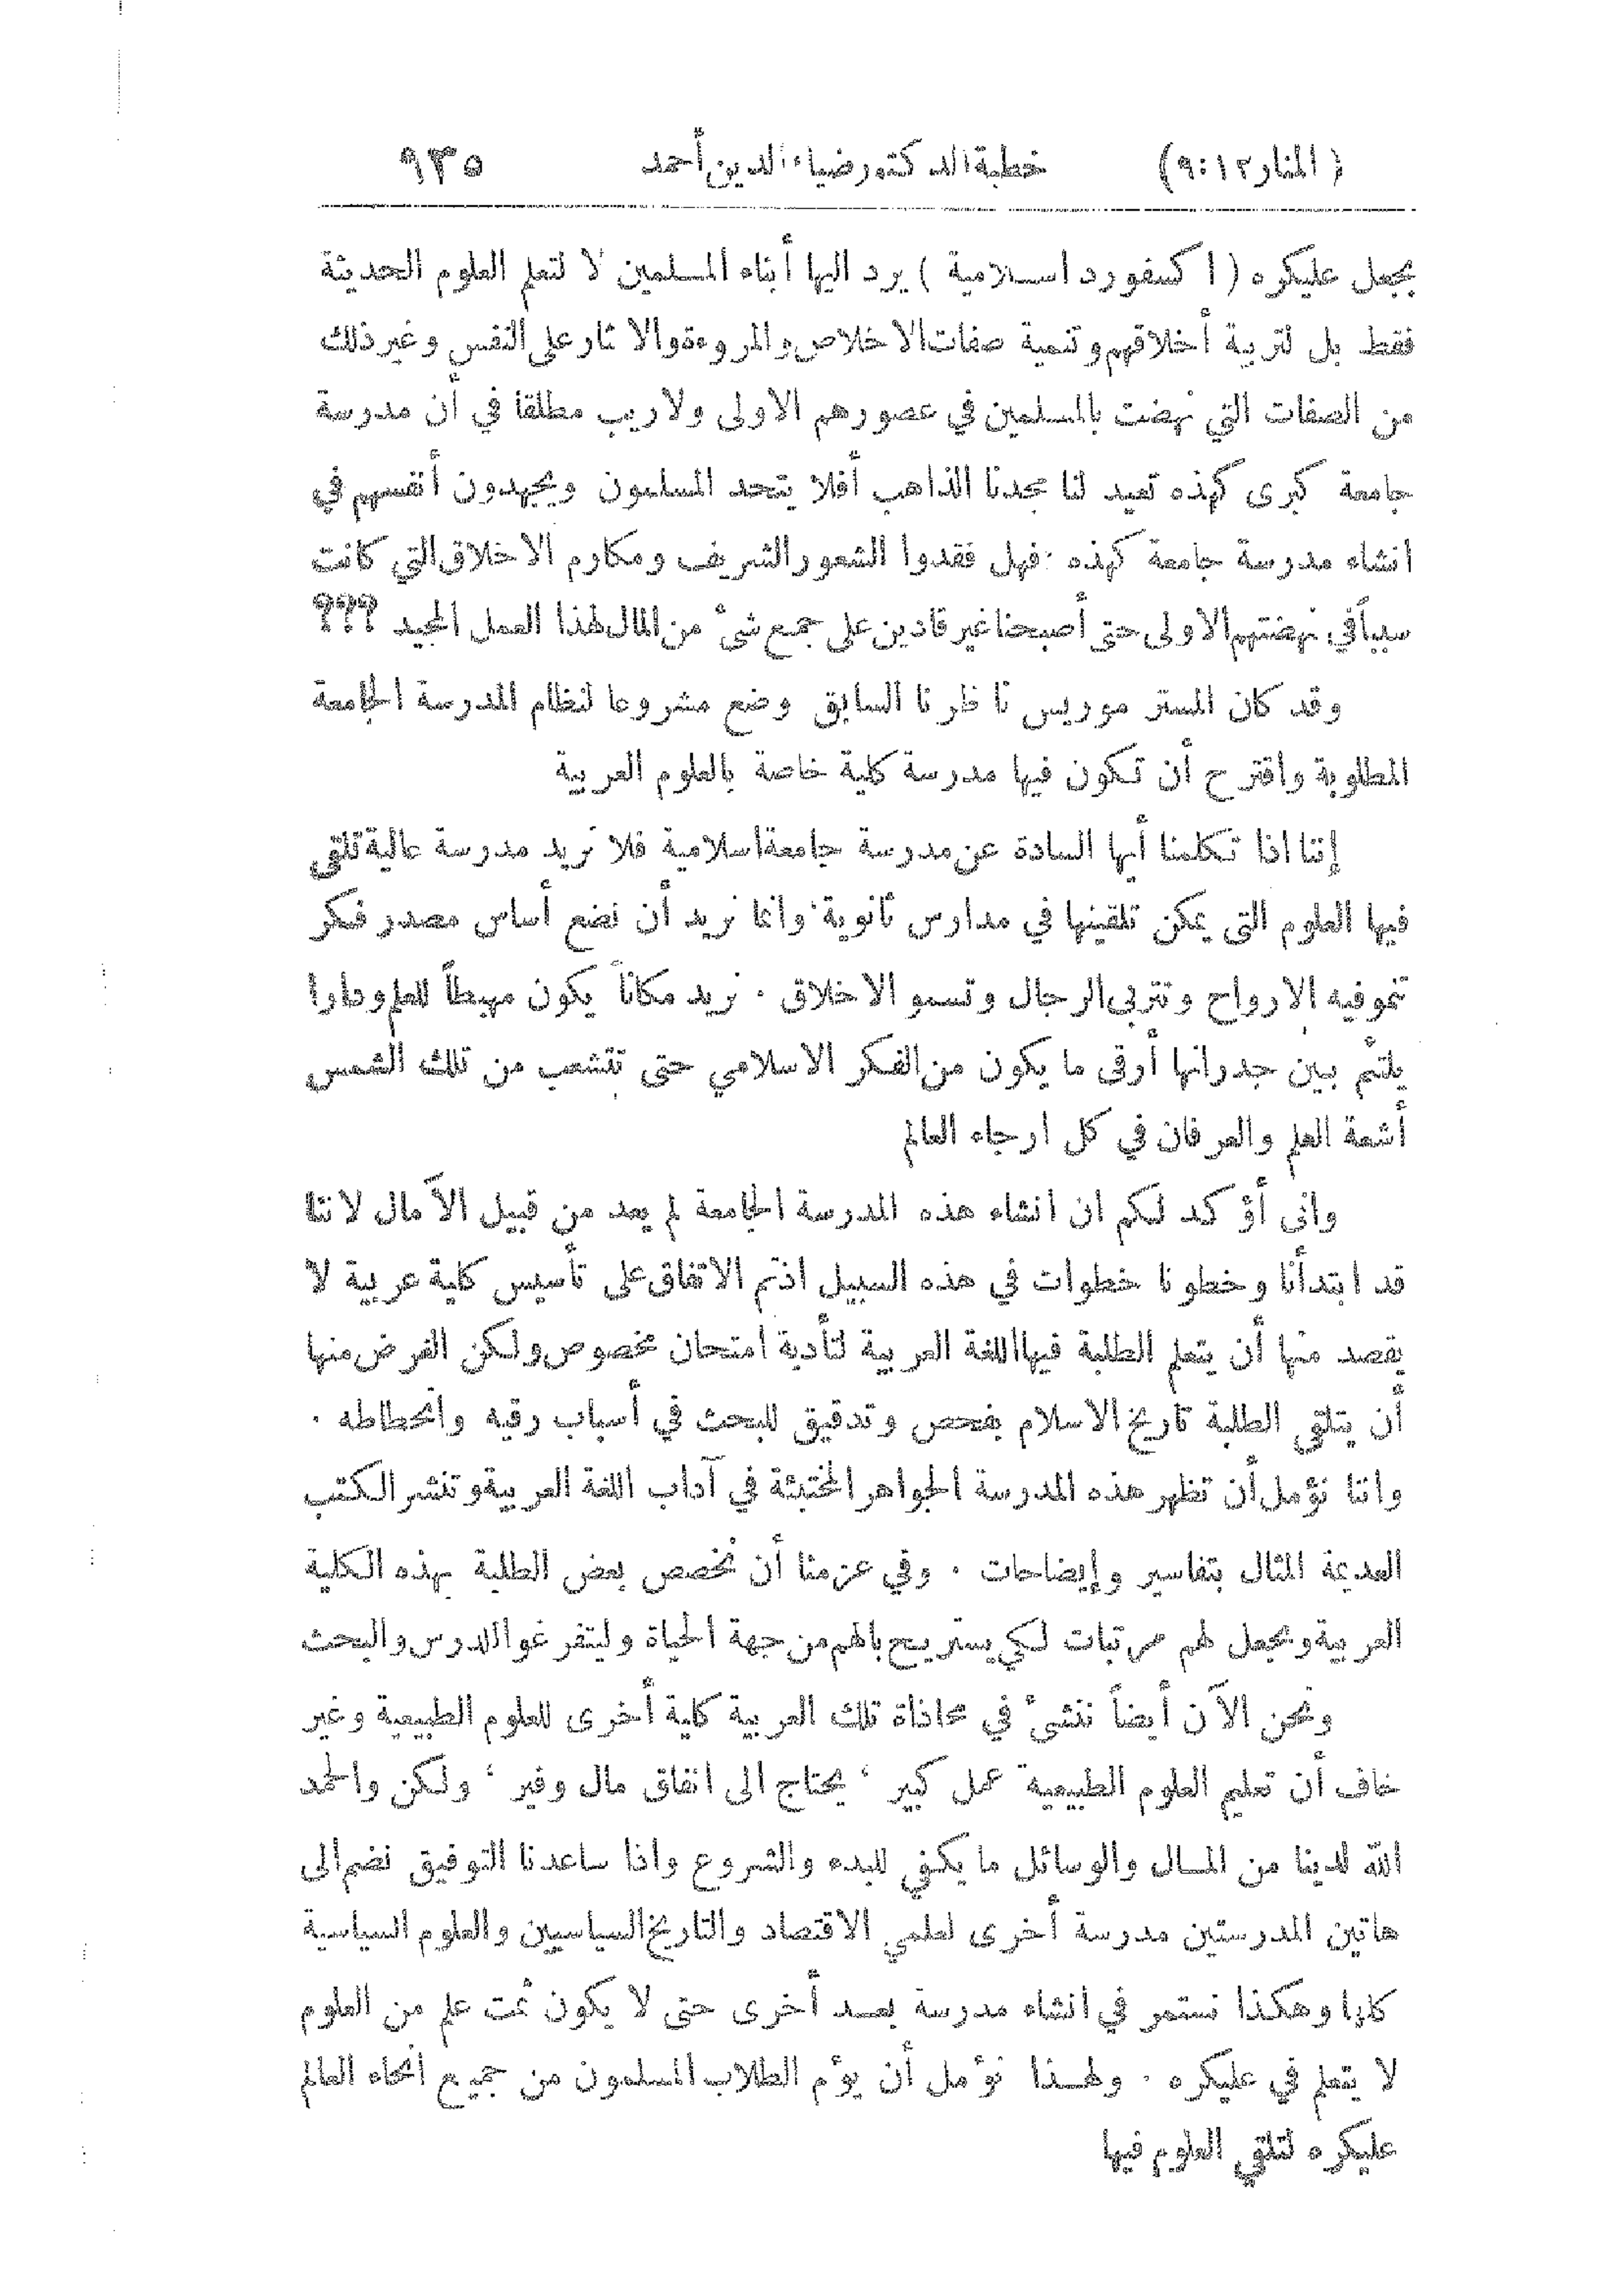 (المنار١٢:٩) خطبة الدكتور ضياء الدين أحمد ٩٣٥
بجعل عليكره (اكسفورد اسلامية) يرد اليها أبناء المسلمين لا لتعلم العلوم الحديثة
فقط بل لتربية أخلاقهم وتنمية صفات الاخلاص والمروءة والاثار على النفس وغير ذلك
من الصفات التي نهضت بالمسلمين في عصورهم الاولى ولا ريب مطلقا في أن مدرسة
جامعة كبرى كهذه تعيد لنا مجدنا الذاهب أفلا يتحد المسلمون ويجهدون أنفسهم في
انشاء مدرسة جامعة كهذه ؛ فهل فقدوا الشعور الشريف ومكارم الاخلاق التي كانت
سبباً في نهضتهم الاولى حتى أصبحنا غير قادين على جمع شئ من المال لهذا العمل المجيد ؟؟؟
وقد كان المستر موريس ناظرنا السابق وضع مشروعا لنظام المدرسة الجامعة
المطلوبة واقترح أن تكون فيها مدرسة كلية خاصة بالعلوم العربية
إننا اذا تكلمنا أيها السادة عن مدرسة جامعة اسلامية فلا نريد مدرسة عالية تلقى
فيها العلوم التى يمكن تلقينها في مدارس ثانوية، وانما نريد أن نضع أساس مصدر فكر
تنمو فيه الارواح وتتربى الرجال وتسمو الاخلاق . نريد مكاناً يكون مهبطاً للعلم ودارا
يلتئم بين جدرانها أرقى ما يكون من الفكر الاسلامي حتى تتشعب من تلك الشمس
أشعة العلم والعرفان في كل ارجاء العالم
وانى أؤكد لكم ان انشاء هذه المدرسة الجامعة لم يعد من قبيل الآمال لاننا
قد ابتدأنا وخطونا خطوات في هذه السبيل اذتم الاتفاق على تأسيس كلية عربية لا
يقصد منها أن يتعلم الطلبة فيها اللغة العربية لتأدية امتحان مخصوص ولكن الغرض منها
أن يتلقى الطلبة تاريخ الاسلام بفحص وتدقيق للبحث في أسباب رقيه وانحطاطه .
واننا نؤمل أن تظهر هذه المدرسة الجواهر المختبئة في آداب اللغة العربية وتنشر الكتب
العديمة المثال بتفاسير وإيضاحات . وفي عزمنا أن نخصص بعض الطلبة بهذه الكلية
العربية ونجعل لهم مرتبات لكي يستريح بالهم من جهة الحياة وليتفرغوا للدرس والبحث
ونحن الآن أيضاً ننشئ في محاذاة تلك العربية كلية أخرى للعلوم الطبيعية وغير
خاف أن تعليم العلوم الطبيعية عمل كبير ، يحتاج الى انفاق مال وفير ، ولكن والحمد
الله لدينا من المال والوسائل ما يكفي للبدء والشروع واذا ساعدنا التوفيق نضم الى
هاتين المدرستين مدرسة أخرى لعلمي الاقتصاد والتاريخ السياسيين والعلوم السياسية
كلها وهكذا نستمر في انشاء مدرسة بعد أخرى حتى لا يكون ثمت علم من العلوم
لا يتعلم في عليكره . ولهذا نؤمل أن يؤم الطلاب المسلمون من جميع انحاء العالم
عليكره لتلقي العلوم فيها